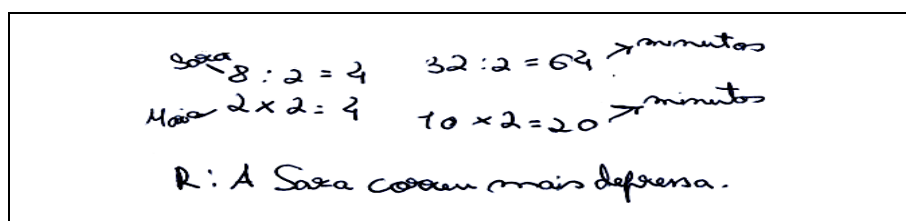 Sara 8 : 2 = 4 32 : 2 = 64 → minutos
Maia 2 × 2 = 4 10 × 2 = 20 → minutos
R: A Sara correu mais depressa.